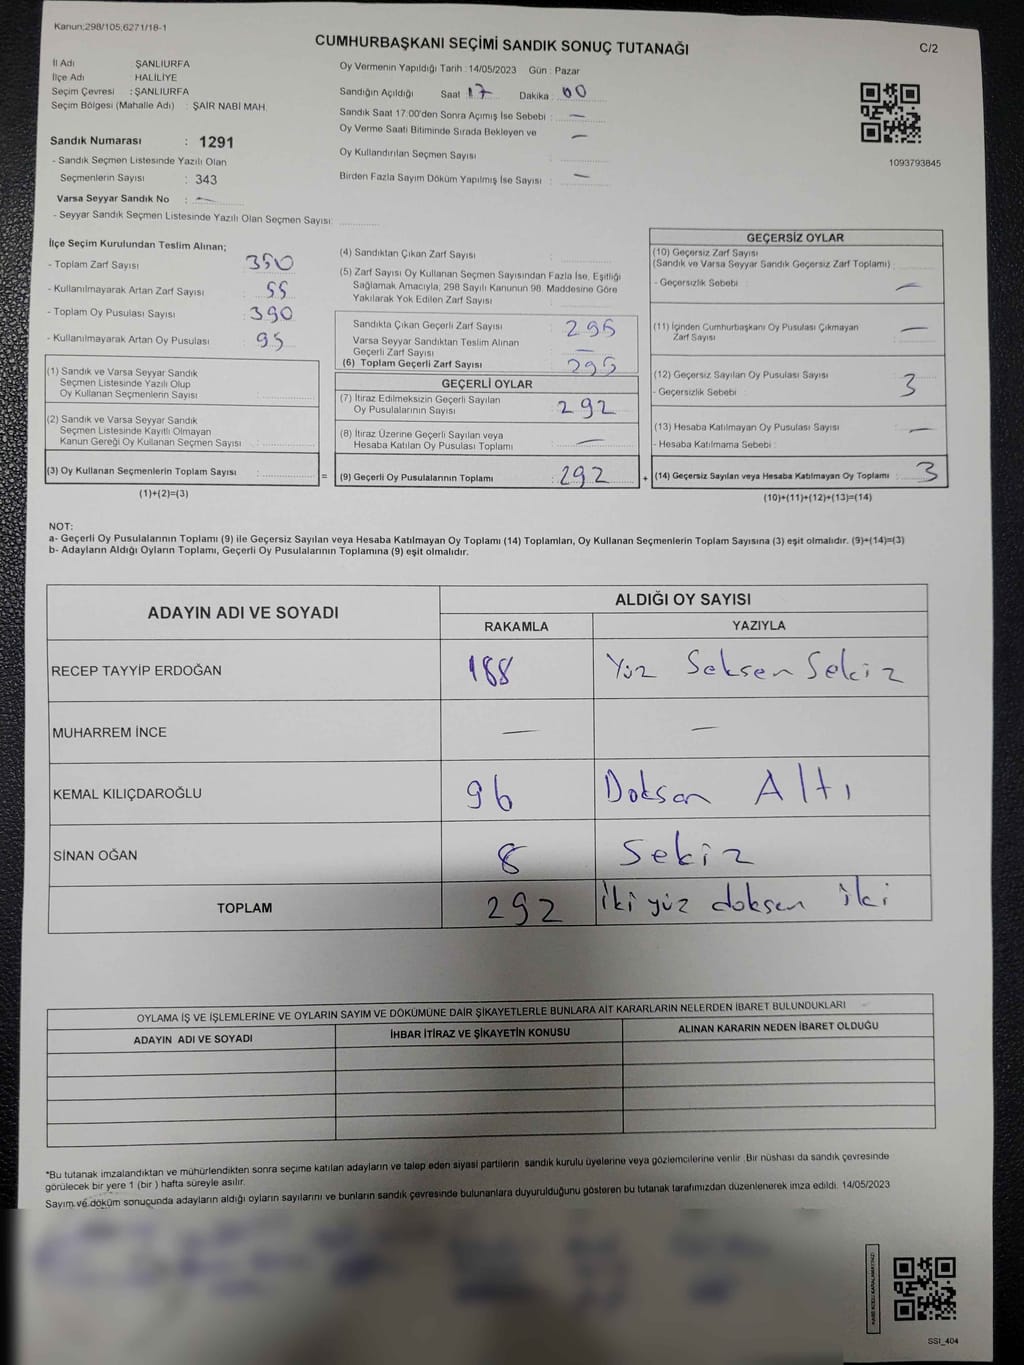 Kanun;298/105;6271/18-1
CUMHURBAŞKANI SEÇİMİ SANDIK SONUÇ TUTANAĞI
C/2
İl Adı : ŞANLIURFA
İlçe Adı : HALİLİYE
Seçim Çevresi : ŞANLIURFA
Seçim Bölgesi (Mahalle Adı) : ŞAİR NABİ MAH.
Sandık Numarası : 1291
- Sandık Seçmen Listesinde Yazılı Olan
Seçmenlerin Sayısı : 343
Varsa Seyyar Sandık No : —
- Seyyar Sandık Seçmen Listesinde Yazılı Olan Seçmen Sayısı:
Oy Vermenin Yapıldığı Tarih : 14/05/2023 Gün : Pazar
Sandığın Açıldığı Saat 17 Dakika 00
Sandık Saat 17:00'den Sonra Açımış İse Sebebi : —
Oy Verme Saati Bitiminde Sırada Bekleyen ve —
Oy Kullandırılan Seçmen Sayısı :
Birden Fazla Sayım Döküm Yapılmış İse Sayısı : —
1093793845
İlçe Seçim Kurulundan Teslim Alınan;
- Toplam Zarf Sayısı : 350
- Kullanılmayarak Artan Zarf Sayısı : 55
- Toplam Oy Pusulası Sayısı : 390
- Kullanılmayarak Artan Oy Pusulası : 95
(1) Sandık ve Varsa Seyyar Sandık
Seçmen Listesinde Yazılı Olup
Oy Kullanan Seçmenlerin Sayısı :
(2) Sandık ve Varsa Seyyar Sandık
Seçmen Listesinde Kayıtlı Olmayan
Kanun Gereği Oy Kullanan Seçmen Sayısı :
(3) Oy Kullanan Seçmenlerin Toplam Sayısı :
(1)+(2)=(3)
=
(4) Sandıktan Çıkan Zarf Sayısı :
(5) Zarf Sayısı Oy Kullanan Seçmen Sayısından Fazla İse, Eşitliği
Sağlamak Amacıyla, 298 Sayılı Kanunun 98. Maddesine Göre
Yakılarak Yok Edilen Zarf Sayısı :
Sandıkta Çıkan Geçerli Zarf Sayısı : 295
Varsa Seyyar Sandıktan Teslim Alınan
Geçerli Zarf Sayısı : —
(6) Toplam Geçerli Zarf Sayısı : 295
GEÇERLİ OYLAR
(7) İtiraz Edilmeksizin Geçerli Sayılan
Oy Pusulalarının Sayısı : 292
(8) İtiraz Üzerine Geçerli Sayılan veya
Hesaba Katılan Oy Pusulası Toplamı : —
(9) Geçerli Oy Pusulalarının Toplamı : 292
+
GEÇERSİZ OYLAR
(10) Geçersiz Zarf Sayısı
(Sandık ve Varsa Seyyar Sandık Geçersiz Zarf Toplamı) :
- Geçersizlik Sebebi : —
(11) İçinden Cumhurbaşkanı Oy Pusulası Çıkmayan
Zarf Sayısı : —
(12) Geçersiz Sayılan Oy Pusulası Sayısı : 3
- Geçersizlik Sebebi :
(13) Hesaba Katılmayan Oy Pusulası Sayısı : —
- Hesaba Katılmama Sebebi :
(14) Geçersiz Sayılan veya Hesaba Katılmayan Oy Toplamı : 3
(10)+(11)+(12)+(13)=(14)
NOT:
a- Geçerli Oy Pusulalarının Toplamı (9) ile Geçersiz Sayılan veya Hesaba Katılmayan Oy Toplamı (14) Toplamları, Oy Kullanan Seçmenlerin Toplam Sayısına (3) eşit olmalıdır. (9)+(14)=(3)
b- Adayların Aldığı Oyların Toplamı, Geçerli Oy Pusulalarının Toplamına (9) eşit olmalıdır.
ADAYIN ADI VE SOYADI
ALDIĞI OY SAYISI
RAKAMLA YAZIYLA
RECEP TAYYİP ERDOĞAN 188 Yüz Seksen Sekiz
MUHARREM İNCE — —
KEMAL KILIÇDAROĞLU 96 Doksan Altı
SİNAN OĞAN 8 Sekiz
TOPLAM 292 İki yüz doksan iki
OYLAMA İŞ VE İŞLEMLERİNE VE OYLARIN SAYIM VE DÖKÜMÜNE DAİR ŞİKAYETLERLE BUNLARA AİT KARARLARIN NELERDEN İBARET BULUNDUKLARI
ADAYIN ADI VE SOYADI İHBAR İTİRAZ VE ŞİKAYETİN KONUSU ALINAN KARARIN NEDEN İBARET OLDUĞU
*Bu tutanak imzalandıktan ve mühürlendikten sonra seçime katılan adayların ve talep eden siyasi partilerin sandık kurulu üyelerine veya gözlemcilerine verilir. Bir nüshası da sandık çevresinde
görülecek bir yere 1 (bir ) hafta süreyle asılır.
Sayım ve döküm sonucunda adayların aldığı oyların sayılarını ve bunların sandık çevresinde bulunanlara duyurulduğunu gösteren bu tutanak tarafımızdan düzenlenerek imza edildi. 14/05/2023
SSI_404